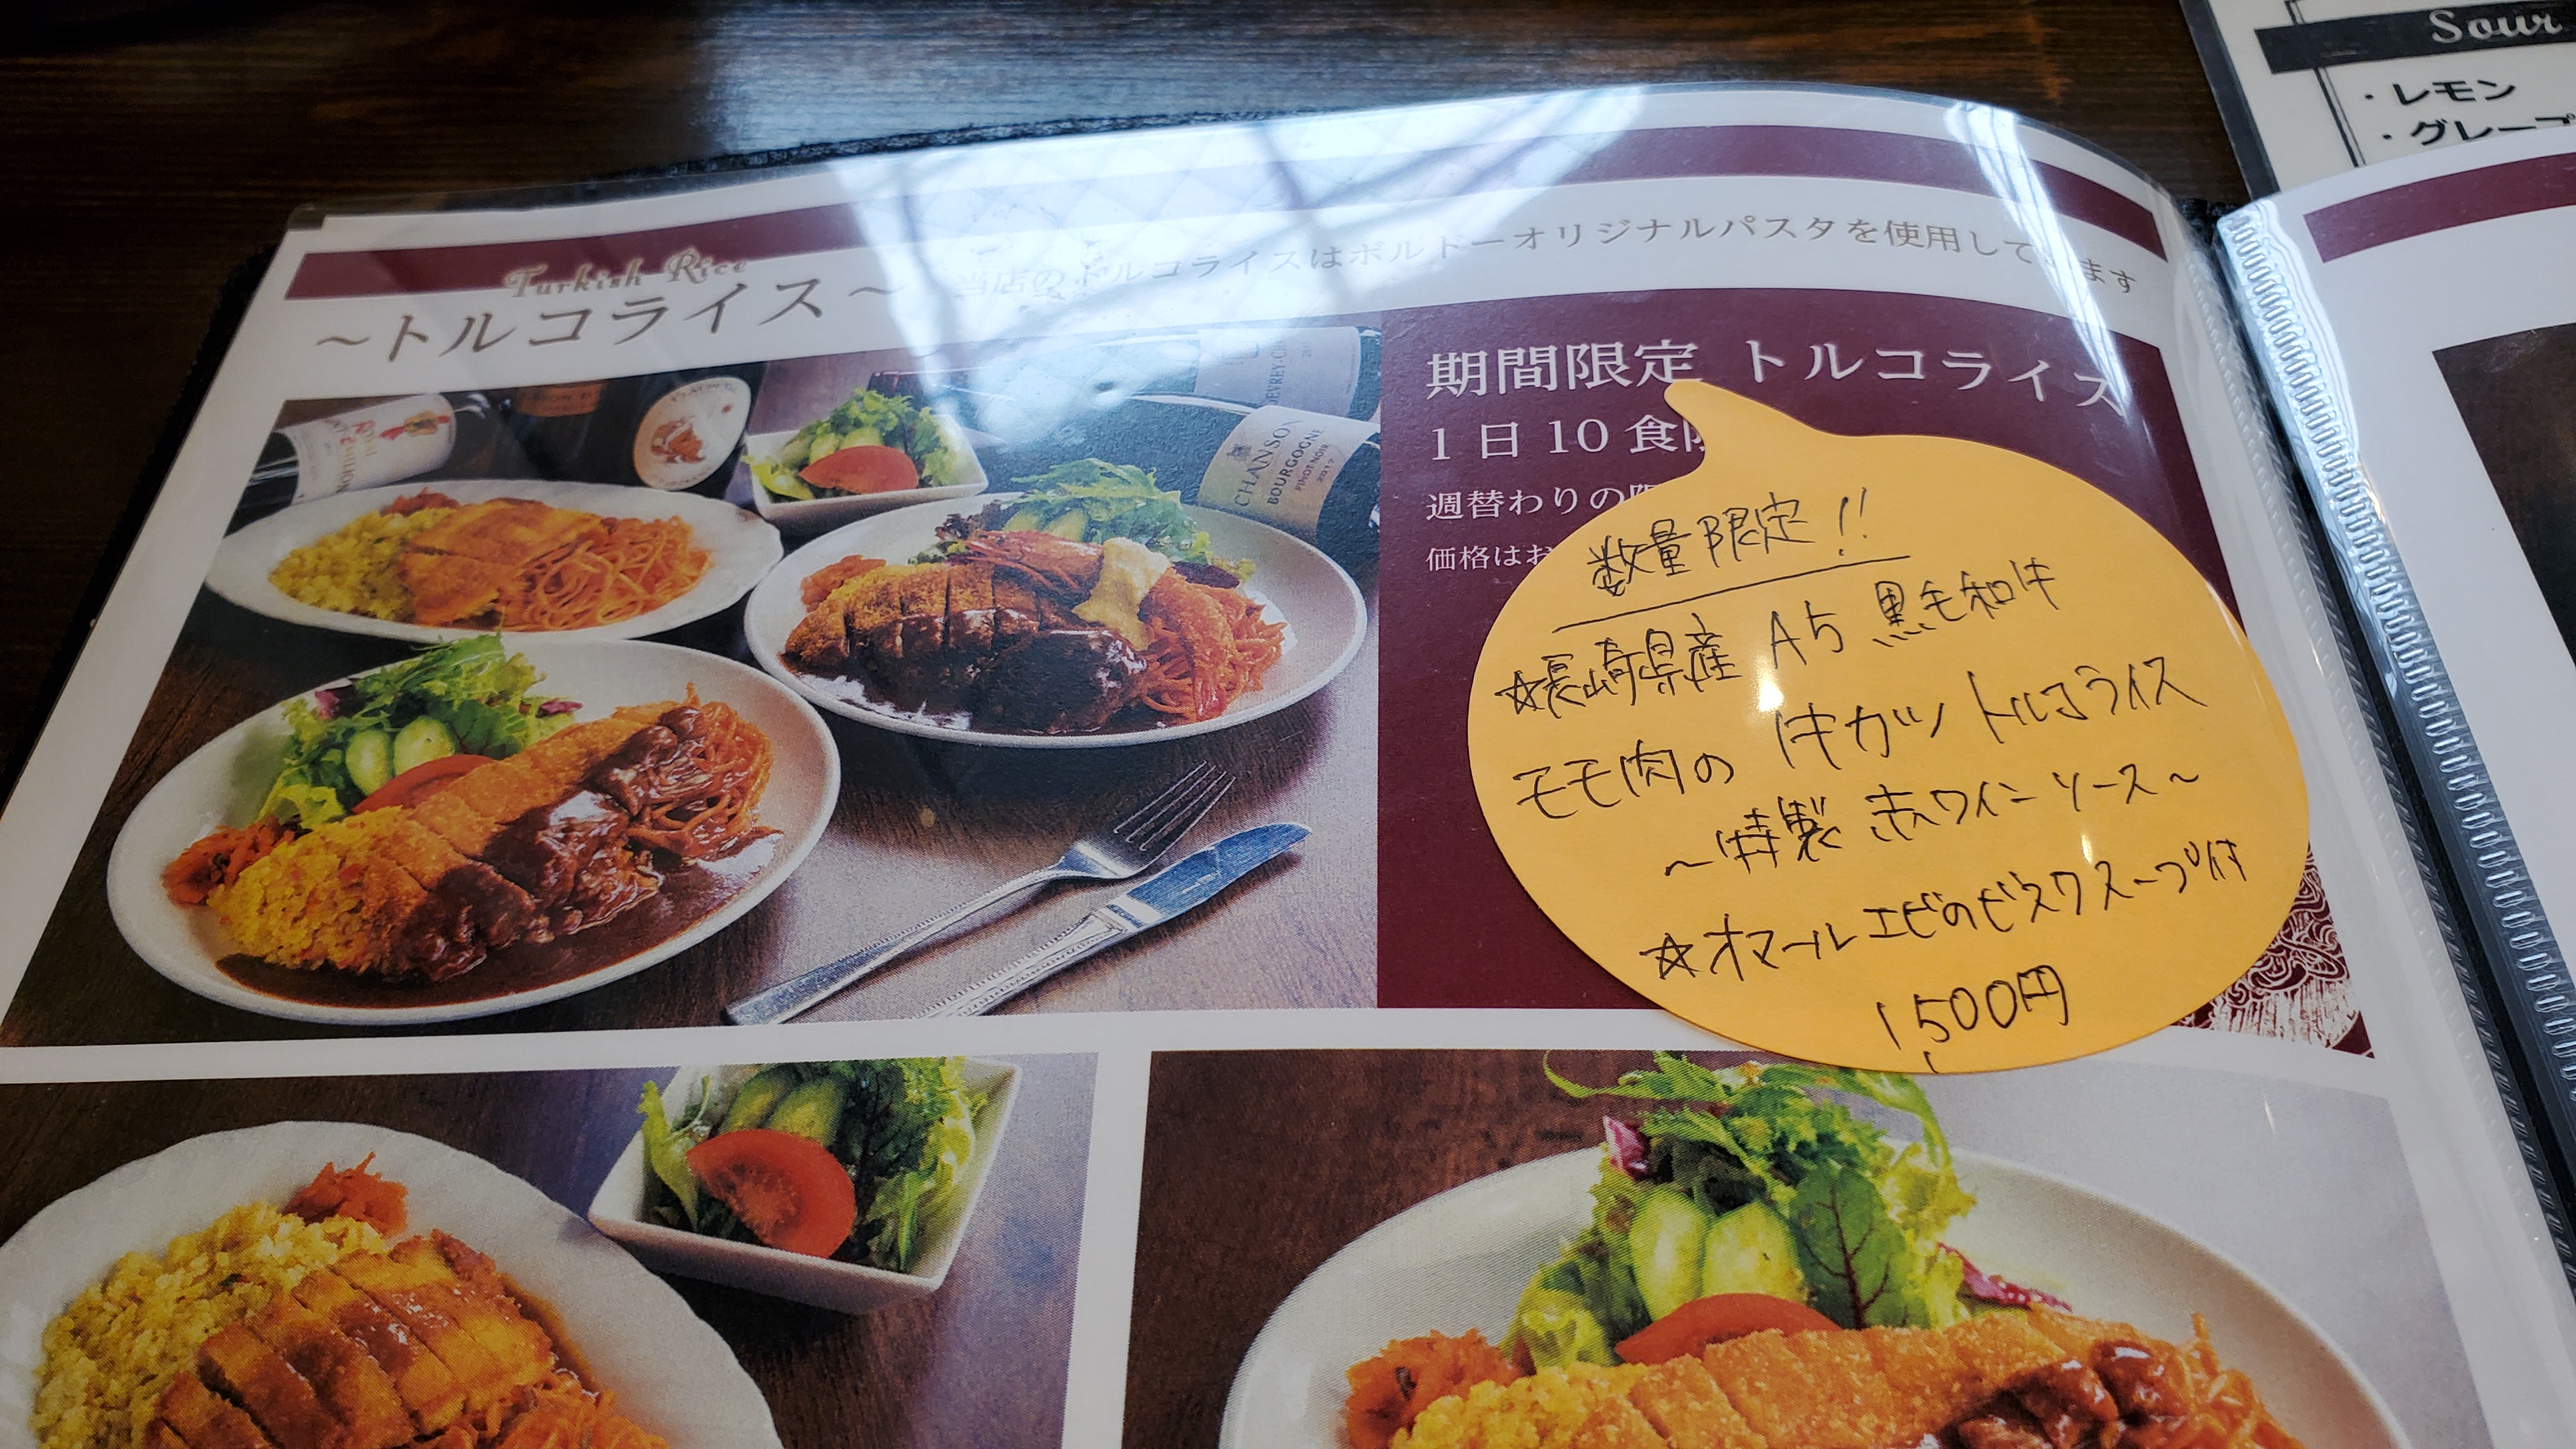 Sour
・レモン
・グレープ
Turkish Rice
～トルコライス～
当店のトルコライスはボルドーオリジナルパスタを使用して ます
期間限定 トルコライス
1日10食限
週替わりの限
価格はお
CHANSON
BOURGOGNE
PINOT NOIR
2017
数量限定!!
☆長崎県産 A5 黒毛和牛
モモ肉の 牛カツ トルコライス
～特製 赤ワインソース～
☆オマールエビのビスクスープ付
1,500円